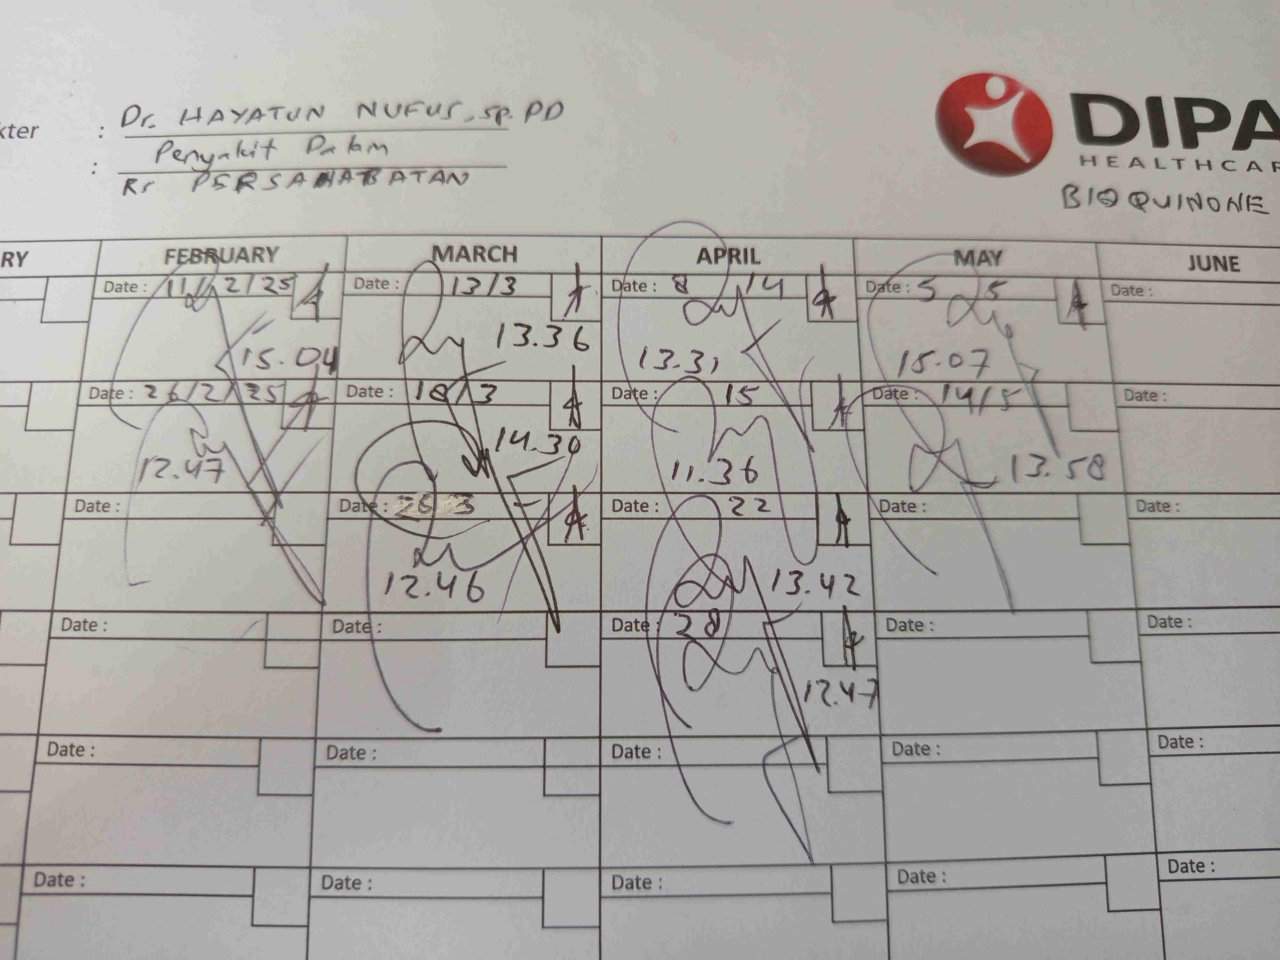 kter : Dr. HAYATUN NUFUS, sp. PD
: Penyakit Dalam
RS PERSAHABATAN
DIPA
HEALTHCAR
BIOQUINONE
RY FEBRUARY MARCH APRIL MAY JUNE
Date : 11/2/25 Date : 13/3 Date : 8 14 Date : 5 5 Date :
15.04 13.36 13.31 15.07
Date : 26/2/25 Date : 18/3 Date : 15 Date : 14/5 Date :
12.47 14.30 11.36 13.58
Date : Date : 25 3 Date : 22 Date : Date :
12.46 13.42
Date : Date : Date : 28 Date : Date :
12.47
Date : Date : Date : Date : Date :
Date : Date : Date : Date : Date :